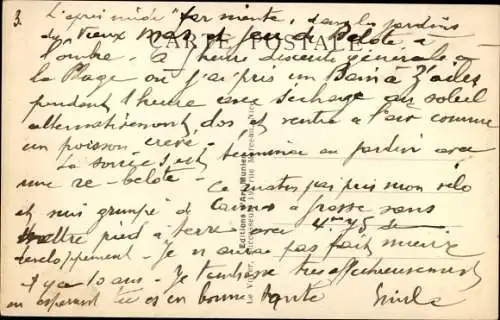 3.
CARTE POSTALE
L'après midi "far niente", dans les jardins
du "Vieux Mas" et jeu de Belote à
l'ombre. À 5 heure descente générale à
la Plage où j'ai pris un Bain à Z'ailes
pendant 1 heure avec séchage au soleil
alternativement, dos et ventre à l'air comme
un poisson crevé.
La soirée s'est terminée au jardin avec
une re-belote. Ce matin j'ai pris mon vélo
et suis grimpé de Cannes à Grasse sans
mettre pied à terre avec 4m 95 de
développement. Je n'aurai pas fait mieux
il y a 10 ans. Je t'embrasse très affectueusement
en espérant tu es en bonne santé Emile
Editions d'Art Munier